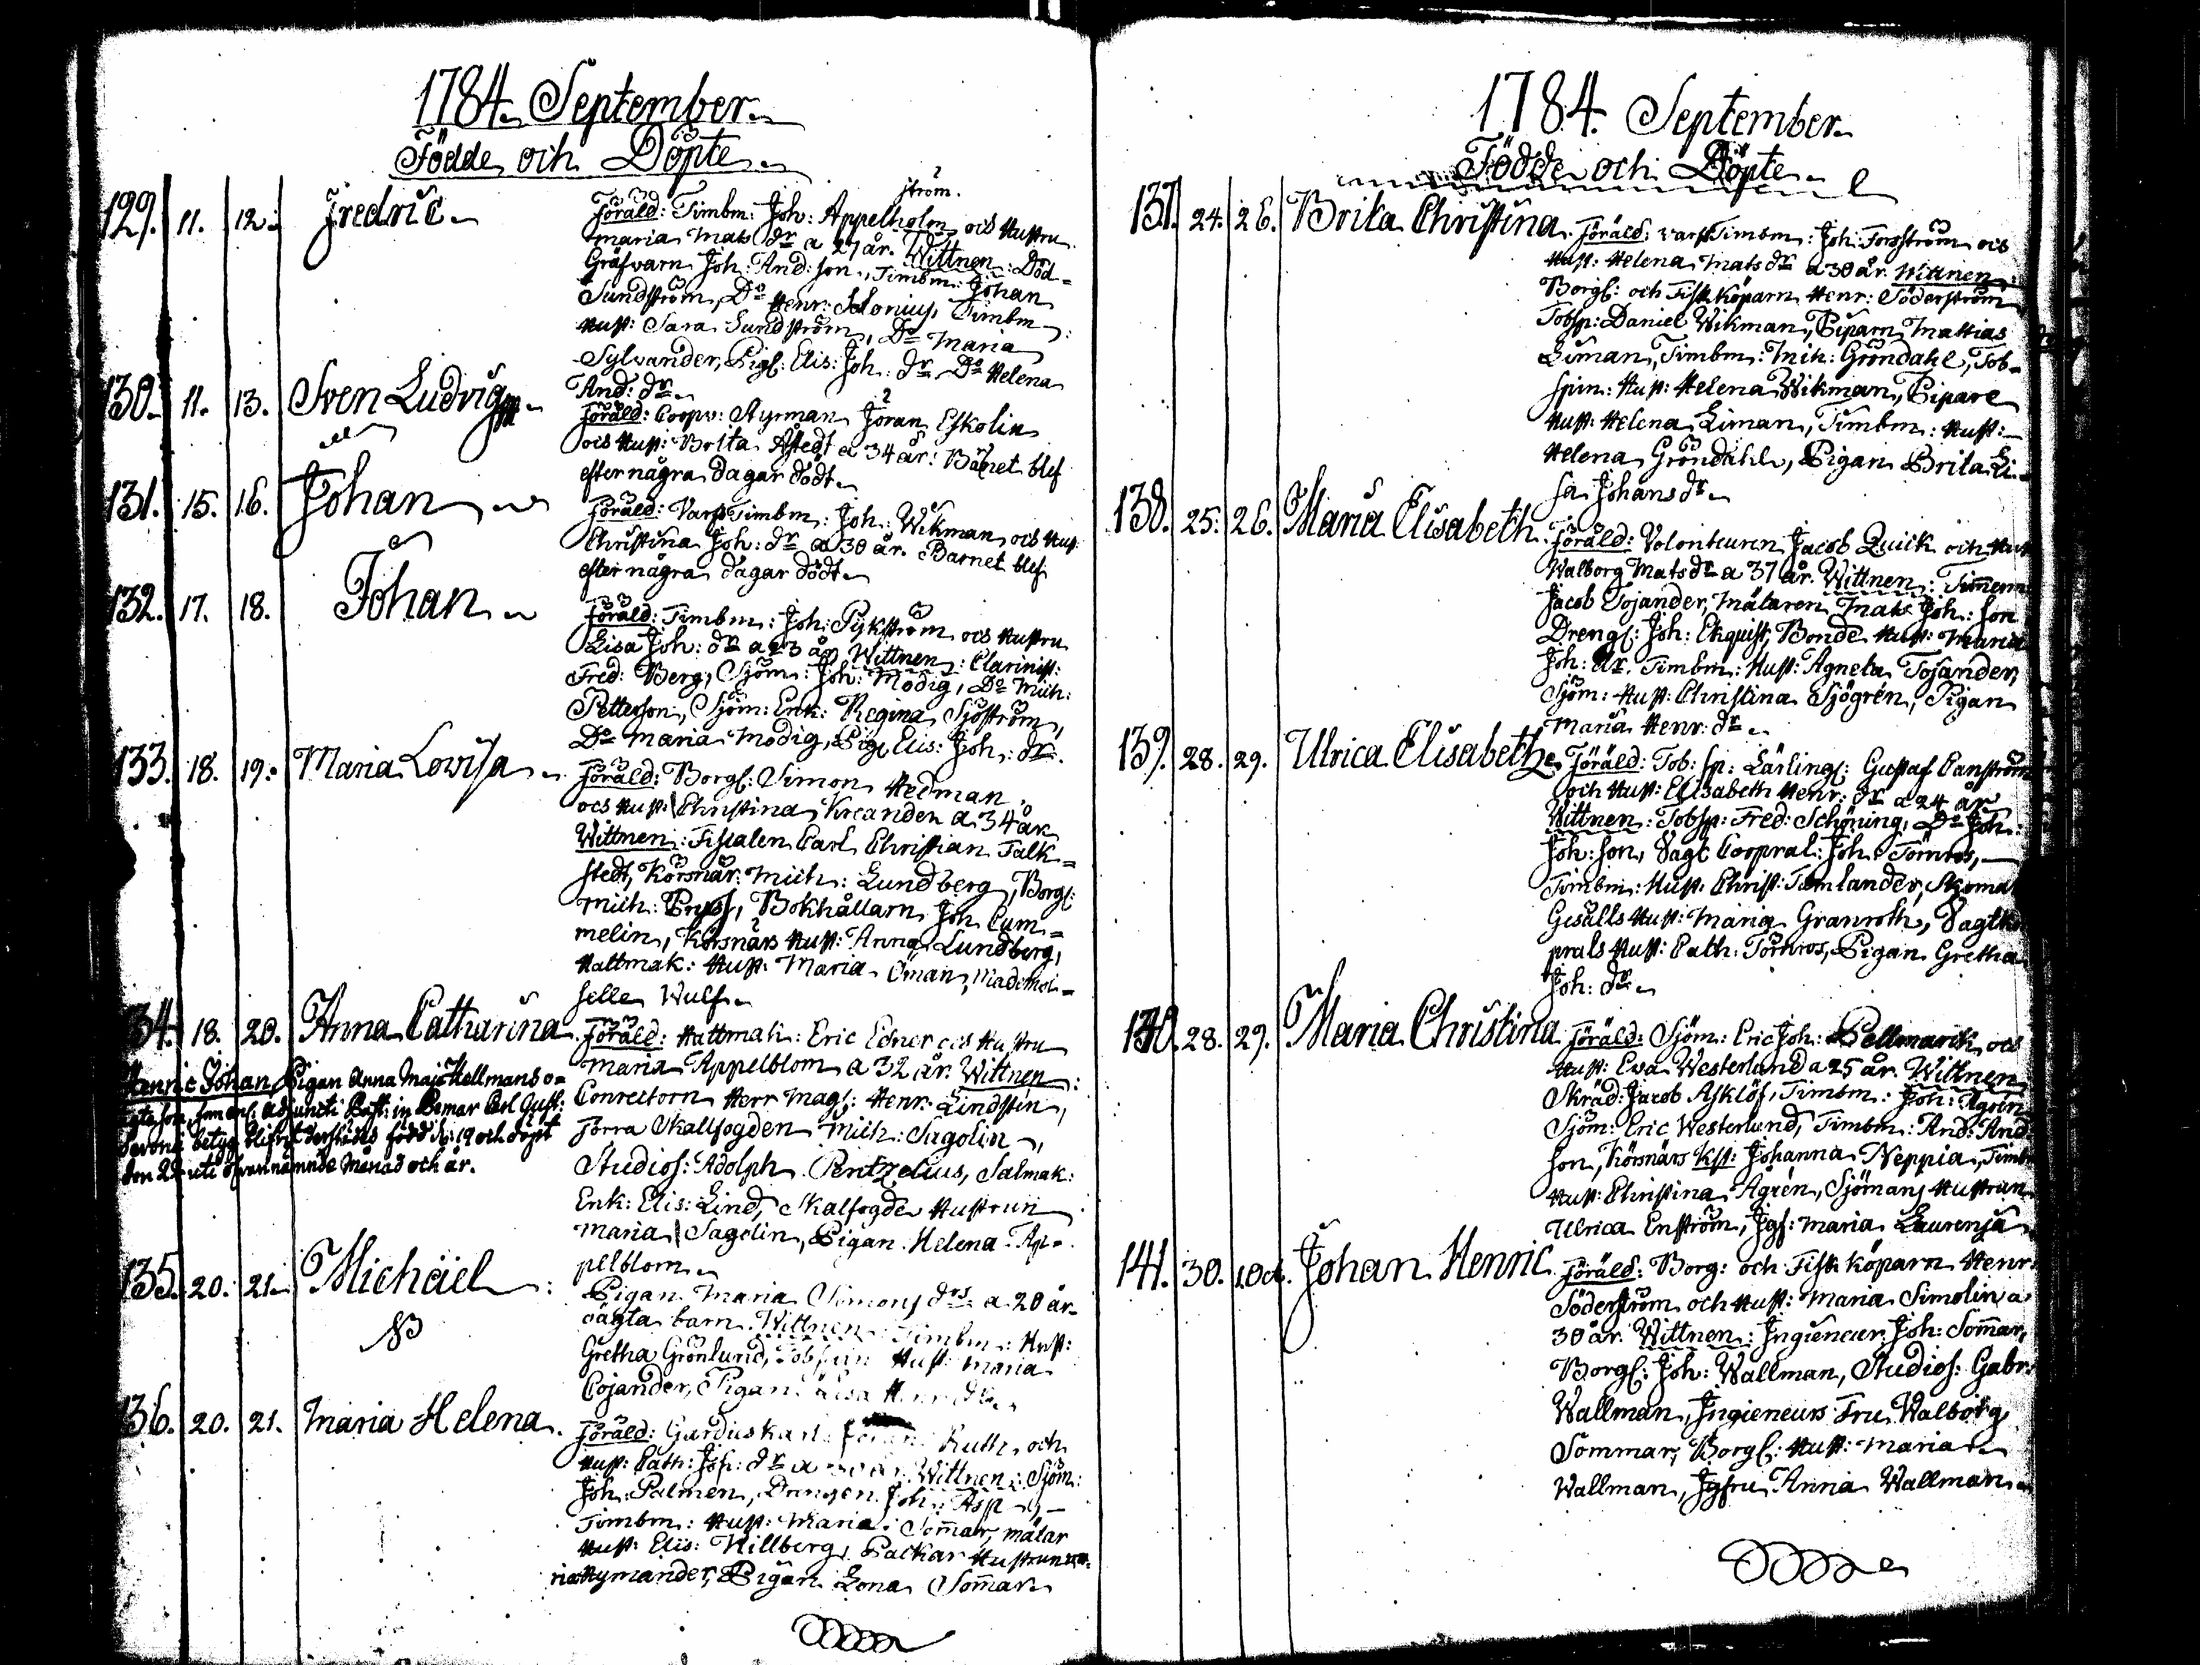 1784. September.
Födde och Döpte.
129. 11. 12. Fredric.
ström.
Föräld: Timbm: Joh: Appelholm och Hustru
Maria Mats dr a 27 år. Wittnen: Död=
Gräfvarn Joh: And: son, Timbm: Johan
Sundström, Do Henr: Salonius, Timbm:
Hust: Sara Sundström, Do Maria
Sylvander, Pig: Elis: Joh: dr Do Helena
And: dr
130. 11. 13. Sven Ludvig
Föräld: Coopv: Styrman Jöran Eskolin
och Hust: Brita Åstedt a 34 år. Barnet blef
efter några dagar dödt.
131. 15. 16. Johan
Föräld: Varfs Timbm: Joh: Wikman och Hust:
Christina Joh: dr a 30 år. Barnet blef
efter några dagar dödt.
132. 17. 18. Johan
Föräld: Timbm: Joh: Pykström och Hustru
Lisa Joh: dr a 23 år Wittnen: Clarinist:
Fred: Berg, Sjöm: Joh: Modig, Do Mich:
Petterson, Sjöm: Enk: Regina Sjöström,
Do Maria Modig, Pig: Elis: Joh: dr.
133. 18. 19. Maria Lovisa
Föräld: Borg: Simon Hedman
och Hust: Christina Kreander a 34 år
Wittnen: Fiscalen Carl Christian Falk=
stedt, Körsnär: Mich: Lundberg, Borg:
Mich: Pryss, Bokhållarn Joh Cum=
melin, Körsnärs Hust: Anna Lundberg,
Hattmak: Hust: Maria Öman, Mademoi=
selle Wulf.
134. 18. 20. Anna Catharina
Föräld: Hattmak: Eric Edner och Hustru
Maria Appelblom a 32 år. Wittnen:
Conrectorn Herr Mag: Henr: Lindsten,
Förra Skallfogden Mich: Sagolin,
Studios: Adolph Pentzelius, Salmak:
Enk: Elis: Lind, Skalfogde Hustrun
Maria Sagolin, Pigan Helena Ap=
pelblom
Henric Johan Pigan Anna Maja Hellmans o=
ägta son, som enl: Adjuncti Past: in Pemar Carl Gust:
betyg blifvit derstädes född d: 19 och döpt
den 22 uti ofvannämnde Månad och år.
135. 20. 21. Michäel
Pigan Maria Simons drs a 20 år
oägta barn. Wittnen Timbm: Hust:
Gretha Grönlund, Tobspin: Hust: Maria
Cojander, Pigan
136. 20. 21. Maria Helena
Föräld: Ruth och
Hust: Cath: Joh: dr a Wittnen: Sjöm:
Joh: Palmen, Drengen Joh: Asp,
Timbm: Hust: Maria Sommar, målar
Hust: Elis: Hillberg, Packar Hustrun Ma=
ria Nymander, Pigan Lona Sommar
1784. September.
Födde och Döpte.
137. 24. 26. Brita Christina
Föräld: varfs Timbm: Joh: Forsström och
Hust: Helena Mats dr a 30 år Wittnen:
Borg: och Fisk köparn Henr: Söderström
Tobsp: Daniel Wikman, Piparn Mattias
Liman, Timbm: Mich: Gröndahl, Tob=
spin: Hust: Helena Wikman, Pipare
Hust: Helena Liman, Timbm: Hust:
Helena Gröndahl, Pigan Brita Li=
sa Johans dr
138. 25. 26. Maria Elisabeth
Föräld: Volonteuren Jacob Quick och Hust
Walborg Mats dr a 37 år. Wittnen: Timerm
Jacob Tojander, Målaren Mats Joh: son
Dreng: Joh: Ekquist, Bonde Hust: Maria
Joh: dr. Timbm: Hust: Agneta Tojander,
Sjöm: Hust: Christina Sjögrén, Pigan
Maria Henr: dr
139. 28. 29. Ulrica Elisabeth
Föräld: Tob: sp: Lärling: Gustaf Canström
och Hust: Elisabeth Henr: dr a 24 år
Wittnen: Tobsp: Fred: Schöning, Do Joh:
Joh: son, Vagt Coopral: Joh: Törnros,
Timbm: Hust: Christ: Tamlander, Skomak
Gesälls Hust: Maria Granroth, Vagtko
prals Hust: Cath: Törnros, Pigan Gretha
Joh: dr
140. 28. 29. Maria Christina
Föräld: Sjöm: Eric Joh: Pellmarck och
Hust: Eva Westerlund a 25 år. Wittnen
Skräd: Jacob Asklöf, Timbm: Joh: Ågrén
Sjöm: Eric Westerlund, Timbm: And: And
son, Körsnärs Hust: Johanna Neppia, Timb
Hust: Christina Ågrén, Sjömans Hustrun
Ulrica Enström, Jgf: Maria Laurenja
141. 30. 1. Oct. Johan Henric
Föräld: Borg: och Fisk köparn Henr:
Söderström och Hust: Maria Simolin a
30 år. Wittnen: Ingieneur: Joh: Sommar,
Borg: Joh: Wallman, Studios: Gabr:
Wallman, Ingieneurs Fru Walborg
Sommar, Borg: Hust: Maria
Wallman, Jgfru Anna Wallman